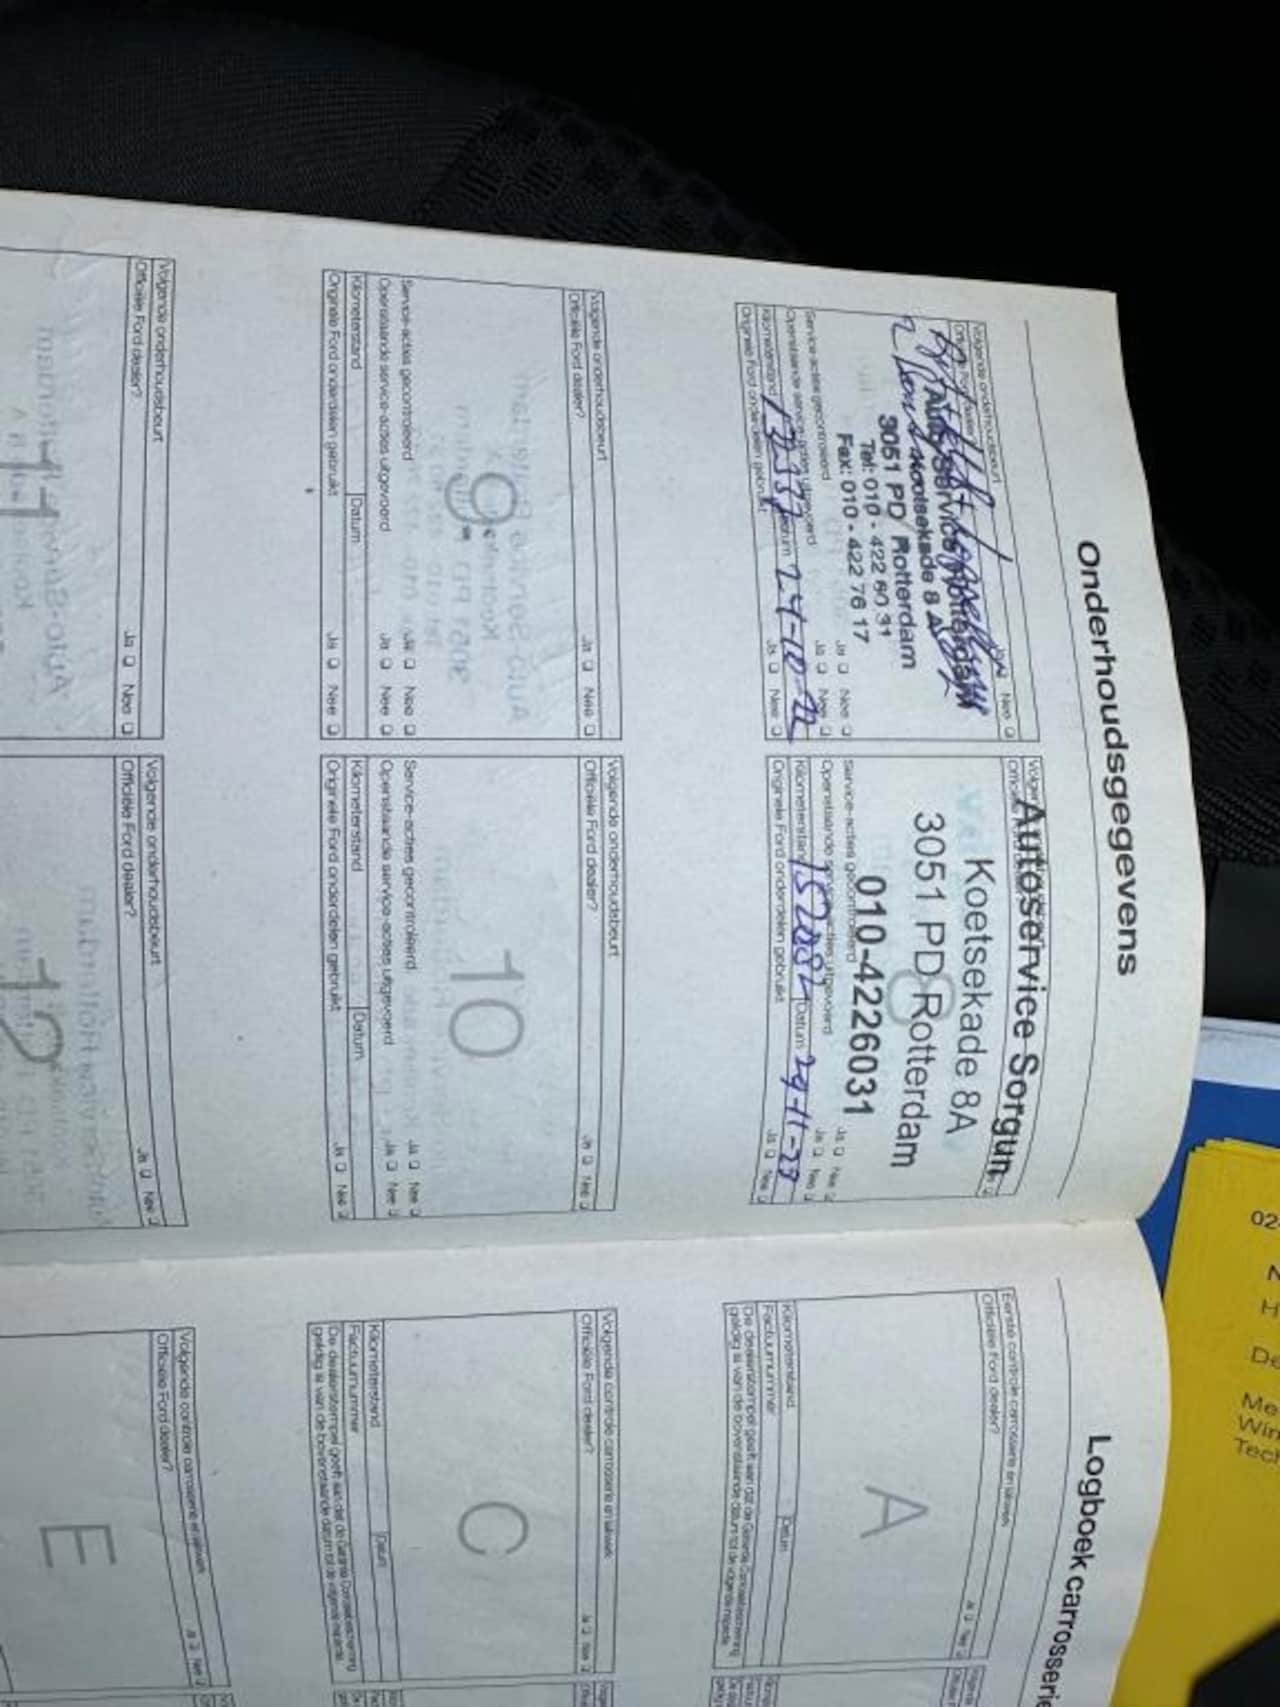 Onderhoudsgegevens
Volgende onderhoudsbeurt
Officiële Ford dealer? Ja Nee
Auto Service Rotterdam
Koetsekade 8 A
3051 PD Rotterdam
Tel: 010 - 422 60 31
Fax: 010 - 422 76 17
Service-acties gecontroleerd Ja Nee
Openstaande service-acties uitgevoerd Ja Nee
Kilometerstand Datum
Originele Ford onderdelen gebruikt Ja Nee
Autoservice Sorgun
Koetsekade 8A
3051 PD Rotterdam
010-4226031
8
Service-acties gecontroleerd Ja Nee
Openstaande service-acties uitgevoerd Ja Nee
Kilometerstand 152082 Datum 29-11-23
Originele Ford onderdelen gebruikt Ja Nee
Volgende onderhoudsbeurt
Officiële Ford dealer? Ja Nee
9
Service-acties gecontroleerd Ja Nee
Openstaande service-acties uitgevoerd Ja Nee
Kilometerstand Datum
Originele Ford onderdelen gebruikt Ja Nee
Volgende onderhoudsbeurt
Officiële Ford dealer? Ja Nee
10
Service-acties gecontroleerd Ja Nee
Openstaande service-acties uitgevoerd Ja Nee
Kilometerstand Datum
Originele Ford onderdelen gebruikt Ja Nee
Volgende onderhoudsbeurt
Officiële Ford dealer? Ja Nee
11
Volgende onderhoudsbeurt
Officiële Ford dealer? Ja Nee
12
Logboek carrosserie
Eerste controle carrosserie en lakwerk
Officiële Ford dealer? Ja Nee
A
Kilometerstand Datum
Factuurnummer
De dealerstempel geeft aan dat de Garantie Carrosseriebescherming
geldig is van de bovenstaande datum tot de volgende inspectie
Volgende controle carrosserie en lakwerk
Officiële Ford dealer? Ja Nee
C
Kilometerstand Datum
Factuurnummer
De dealerstempel geeft aan dat de Garantie Carrosseriebescherming
geldig is van de bovenstaande datum tot de volgende inspectie
Volgende controle carrosserie en lakwerk
Officiële Ford dealer? Ja Nee
E